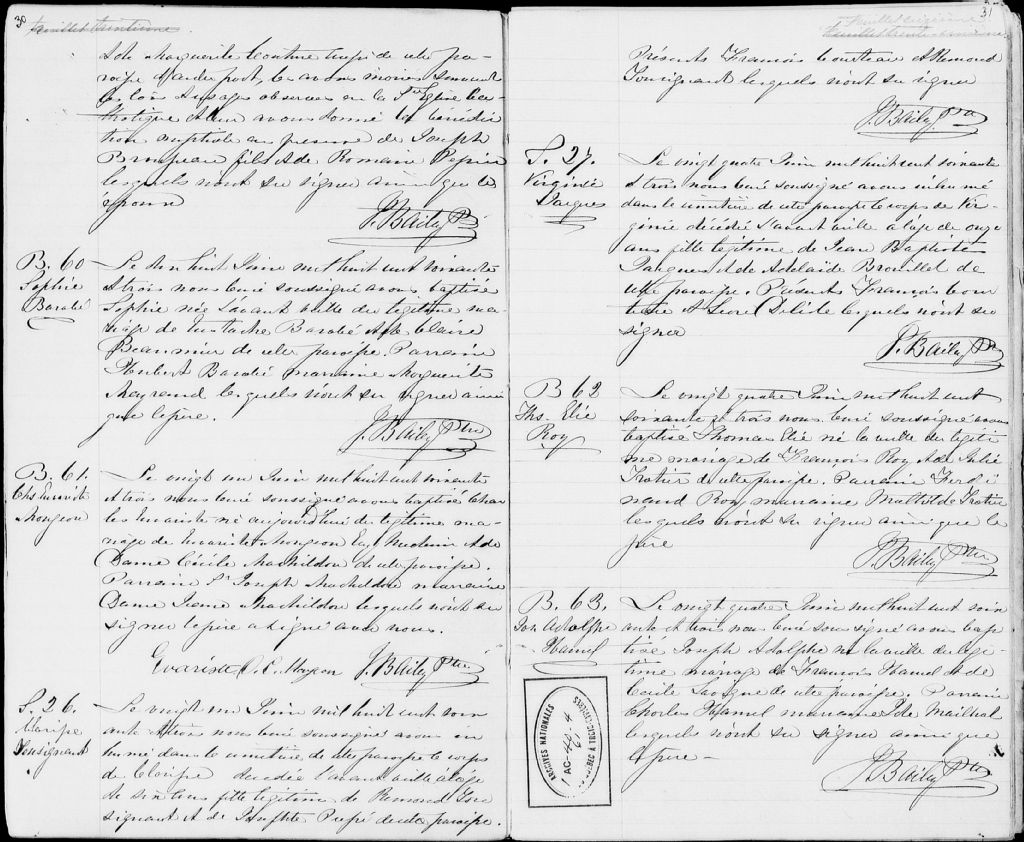 30
feuillet trentième
et de Marguerite Couture aussi de cette pa-
roisse d'autre part, les avons mariés suivant
les lois et usages observés en la Ste Eglise Ca-
tholique et leur avons donné la bénédic
tion nuptiale en présence de Joseph
fils et de Romain Pepin
lesquels n'ont su signer ainsi que les
époux
J. Bailey Ptre
B. 60
Sophie
Barabé
Le dix huit Juin mil huit cent soixante
et trois nous Curé soussigné avons baptisé
Sophie née l'avant veille du légitime ma-
riage de Eustache Barabé et de Claire
Beaumier de cette paroisse. Parrain
Hubert Barabé marraine Marguerite
Mayrand lesquels n'ont su signer ainsi
que le père.
J. Bailey Ptre
B. 61.
Chs Evariste
Mongeon
Le vingt un Juin mil huit cent soixante
et trois nous Curé soussigné avons baptisé Char
les Evariste né aujourd'hui du légitime ma-
riage de Evariste Mongeon Ecr Medecin et de
Dame Cécile Machildon de cette paroisse.
Parrain Sr Joseph Machildon marraine
Dame Machildon lesquels n'ont su
signer le père a signé avec nous.
Evariste C. Mongeon J. Bailey Ptre
S. 26.
Clarisse
Tousignant
Le vingt un Juin mil huit cent soix
ante et trois nous Curé soussigné avons in
humé dans le cimetière de cette paroisse le corps
de Clarisse décédée l'avant veille à l'âge
de six ans fille légitime de Remond Tou
signant et de Pepé de cette paroisse.
31
Feuillet
Feuillet trente et unième
Présents François Couture et Remond
Tousignant lesquels n'ont su signer
J. Bailey Ptre
S. 27.
Virginie
Jacques
Le vingt quatre Juin mil huit cent soixante
et trois nous Curé soussigné avons inhumé
dans le cimetière de cette paroisse le corps de Vir-
ginie décédée l'avant veille à l'âge de onze
ans fille légitime de Jean Baptiste
Jacques et de Adelaïde Brouillet de
cette paroisse. Présents François Cou
ture et Delisle lesquels n'ont su
signer
J. Bailey Ptre
B 62
Ths. Elie
Roy
Le vingt quatre Juin mil huit cent
soixante et trois nous Curé soussigné avons
baptisé Thomas Elie né la veille du légiti
me mariage de François Roy et de Julie
Trotier de cette paroisse. Parrain Ferdi
nand Roy marraine Mathilde Trotier
lesquels n'ont su signer ainsi que le
père
J. Bailey Ptre
B. 63.
Jos. Adolphe
Hamel
Le vingt quatre Juin mil huit cent soix
ante et trois nous Curé soussigné avons bap
tisé Joseph Adolphe né la veille du légi-
time mariage de François Hamel et de
Cécile Lavigne de cette paroisse. Parrain
Charles Hamel marraine Mailhot
lesquels n'ont su signer ainsi que
le père —
J. Bailey Ptre
ARCHIVES NATIONALES
AC-40-4
61